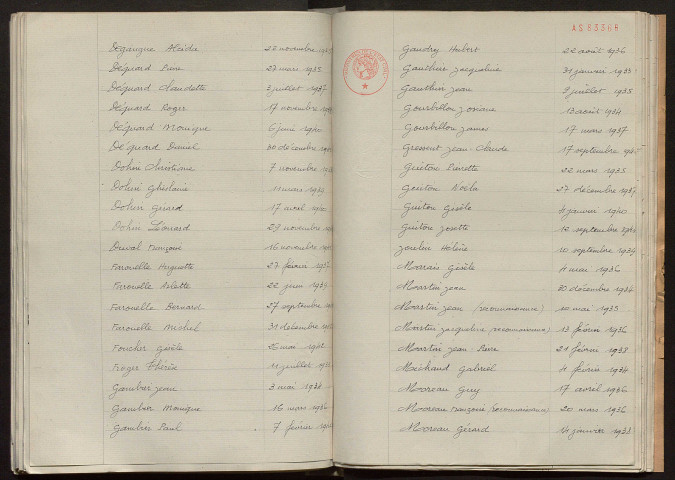 Déquard Pierre 27 mars 1935
Déquard Claudette 3 juillet 1937
Déquard Roger 17 novembre
Déquard Monique 6 juin
Déquard Daniel 30 décembre
Dohin Christiane 7 novembre
Dohin Ghislain 11 mars 1939
Dohin Gérard 17 avril
Dohin Léonard 29 novembre
Duval Françoise 16 novembre
Farouelle Huguette 27 février
Farouelle Arlette 22 juin
Farouelle Bernard 27 septembre
Farouelle Michel 31 décembre
Foucher Gisèle mai
Froger Thérèse 11 juillet
Gambier Jean 3 mai 1938
Gambier Monique 16 mars
Gambier Paul 7 février
AS 83366
Gaudry Hubert 22 août 1936
Gauthier Jacqueline 31 janvier 1933
Gauthier Jean 9 juillet 1935
Gourbillon Josiane 13 août 1934
Gourbillon James 17 mars 1937
Gressent Jean-Claude 17 septembre
Guiton Pierrette 22 mars 1935
Guiton Noëla 27 décembre 1937
Guiton Gisèle janvier
Guiton Josette 12 septembre
Joulin Hélène 10 septembre 1934
Marrais Gisèle mai 1936
Martin Jean 20 décembre 1934
Martin Jean (reconnaissance) 10 mai 1935
Martin Jacqueline (reconnaissance) 13 février 1936
Martin Jean-Pierre 21 février 1938
Michaud Gabriel février 1934
Moreau Guy 17 avril 1936
Moreau Françoise (reconnaissance) 20 mars 1936
Moreau Gérard 14 janvier 1933